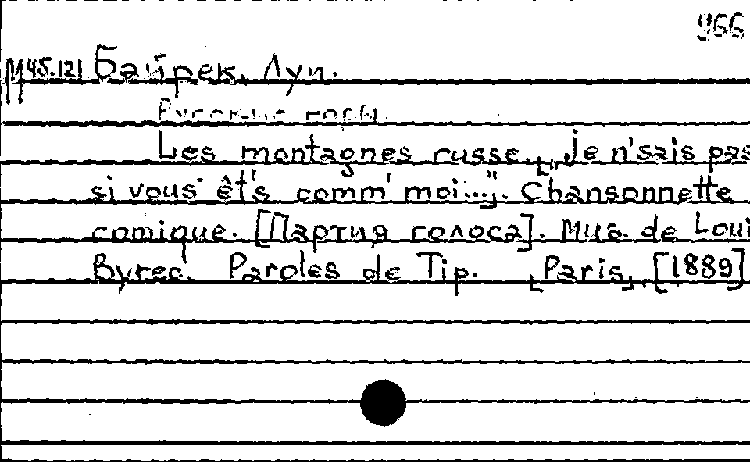 966
М45.121 Байрек, Луи.
Русские горы
Les montagnes russe. ["Je n'sais pas
si vous êt's comm' moi..."]. Chansonnette
comique. [Партия голоса]. Mus. de Loui
Byrec. Paroles de Tip. [Paris], [1889]